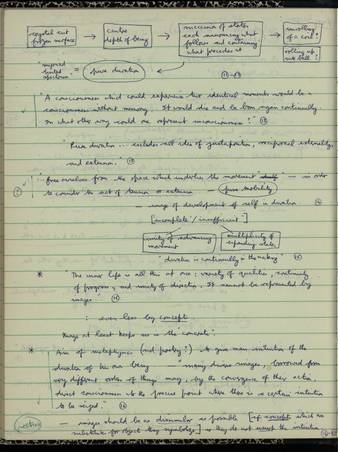 centre
depth of being
succession of states
each announcing what
follows and containing
what precedes it
unrolling
of a coil?
rolling up
of a ball?
= pure duration
"A consciousness which could experience two identical moments would be a
consciousness without memory. It would die and be born again continually.
In what other way could one represent unconsciousness?"
"Pure duration ... excludes all idea of juxtaposition, reciprocal externality,
and extension."
"free ourselves from the space which underlies the movement — in order
to consider the act of tension or extension — pure mobility
— image of development of self in duration
[incomplete / insufficient]
unity of advancing
movement
multiplicity of
expanding states
"duration is continually in the making"
* "The inner life is all this at once: variety of qualities, continuity
of progress, and unity of direction. It cannot be represented by
images"
: even less by concept
Image at least keeps us in the concrete.
* Aim of metaphysics (and poetry?) to give man intuition of the
duration of his own being — many diverse images, borrowed from
very different orders of things may, by the convergence of their action
direct consciousness to the precise point where there is a certain intuition
to be seized."
— images should be as dissimilar as possible [if concepts which are
substitutes for object they symbolize] so they do not usurp the intuition